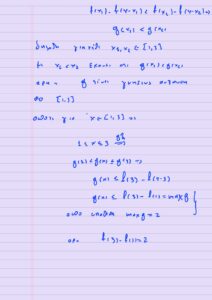 f(x₁) - f(4-x₁) < f(x₂) - f(4-x₂) ⇒
g(x₁) < g(x₂)
δηλαδή για κάθε x₁, x₂ ∈ [1,3]
με x₁ < x₂ έχουμε ότι g(x₁) < g(x₂)
άρα η g είναι γνησίως αύξουσα
στο [1,3]
οπότε για x ∈ [1,3]
1 ≤ x ≤ 3 ⇒
g(1) ≤ g(x) ≤ g(3) ⇒
g(x) ≤ f(3) - f(4-3)
g(x) ≤ f(3) - f(1) = max g
max g = 2
άρα f(3) - f(1) = 2